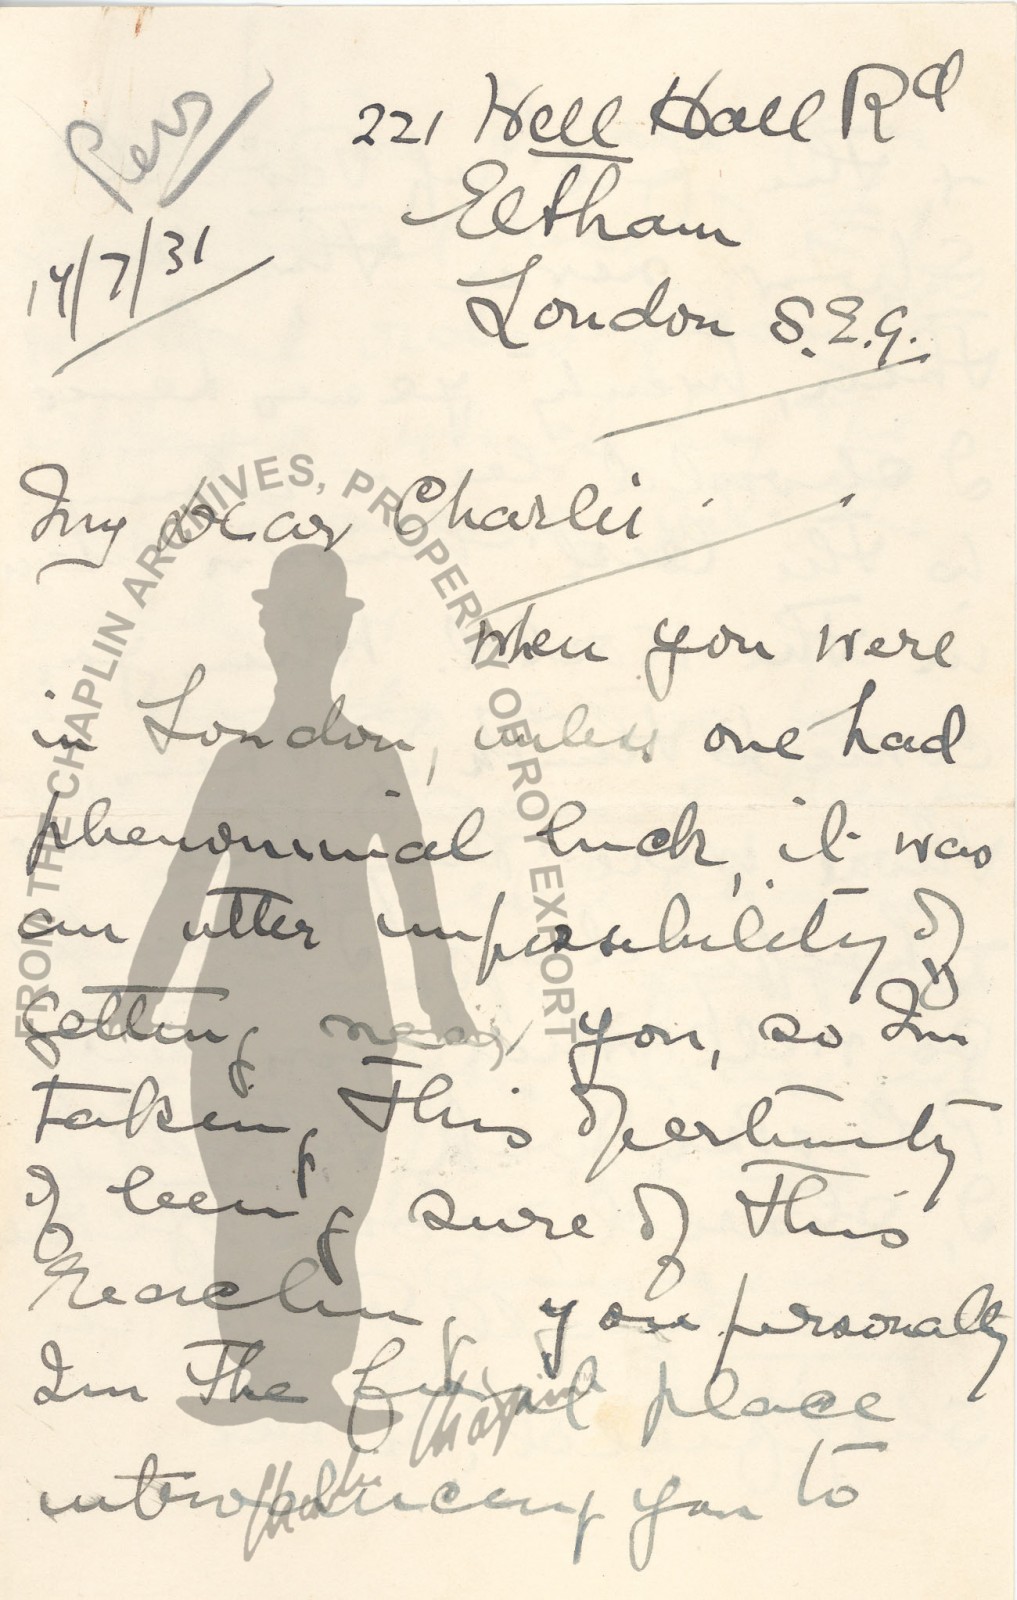 Pers
221 Well Hall Rd
Eltham
14/7/31
London S.E.9.
My dear Charlie
When you were
in London, unless one had
phenominal luck, it was
an utter impossibility of
getting near you, so Im
taking this opertunity
of being sure of this
reaching you personally
Im the first place
introducing you to
FROM THE CHAPLIN ARCHIVES, PROPERTY OF ROY EXPORT
Charlie Chaplin